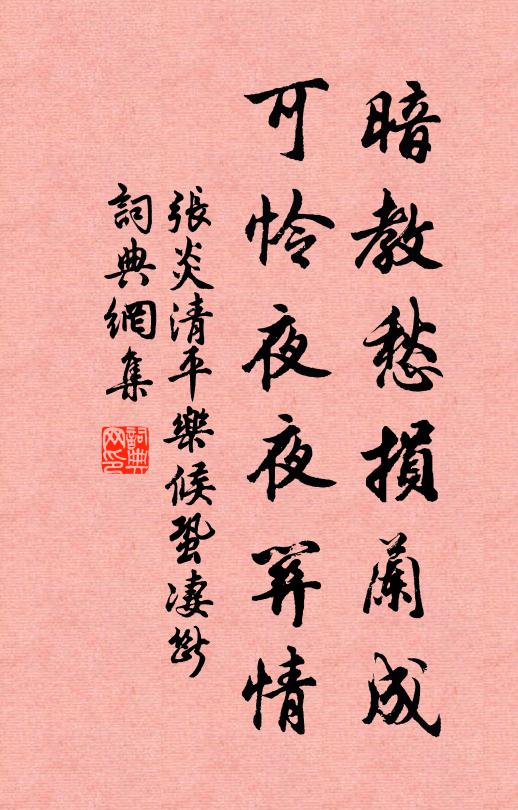 暗教愁損蘭成
可怜夜夜関情
張炎清平樂候蛩淒斷
詞典網集
詞典網印